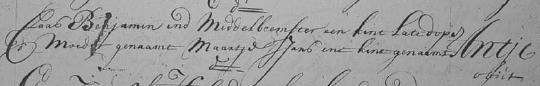 Claas Benjamin ind Middelbeemster een kint Late dopen
de Moeder genaamt Maartje Jans int kint genaamt Antje
obiit